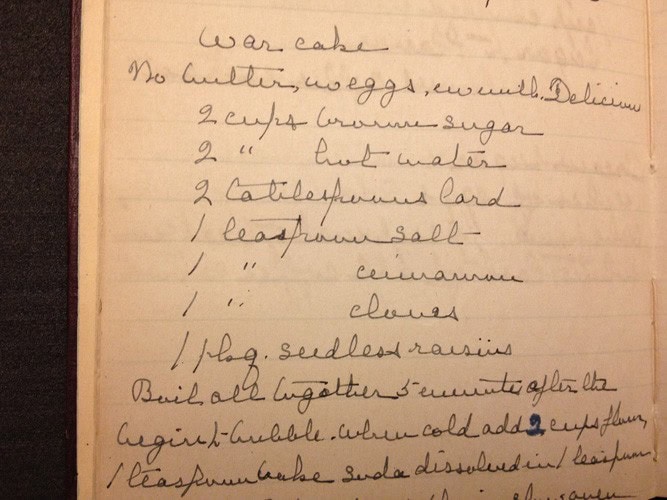 War cake
No butter, no eggs, no milk. Delicious
2 cups brown sugar
2 " hot water
2 tablespoons lard
1 teaspoon salt
1 " cinnamon
1 " cloves
1 pkg. seedless raisins
Boil all together 5 minutes after the
begin to bubble. When cold add 2 cups flour,
1 teaspoon bake soda dissolved in 1 teaspoon